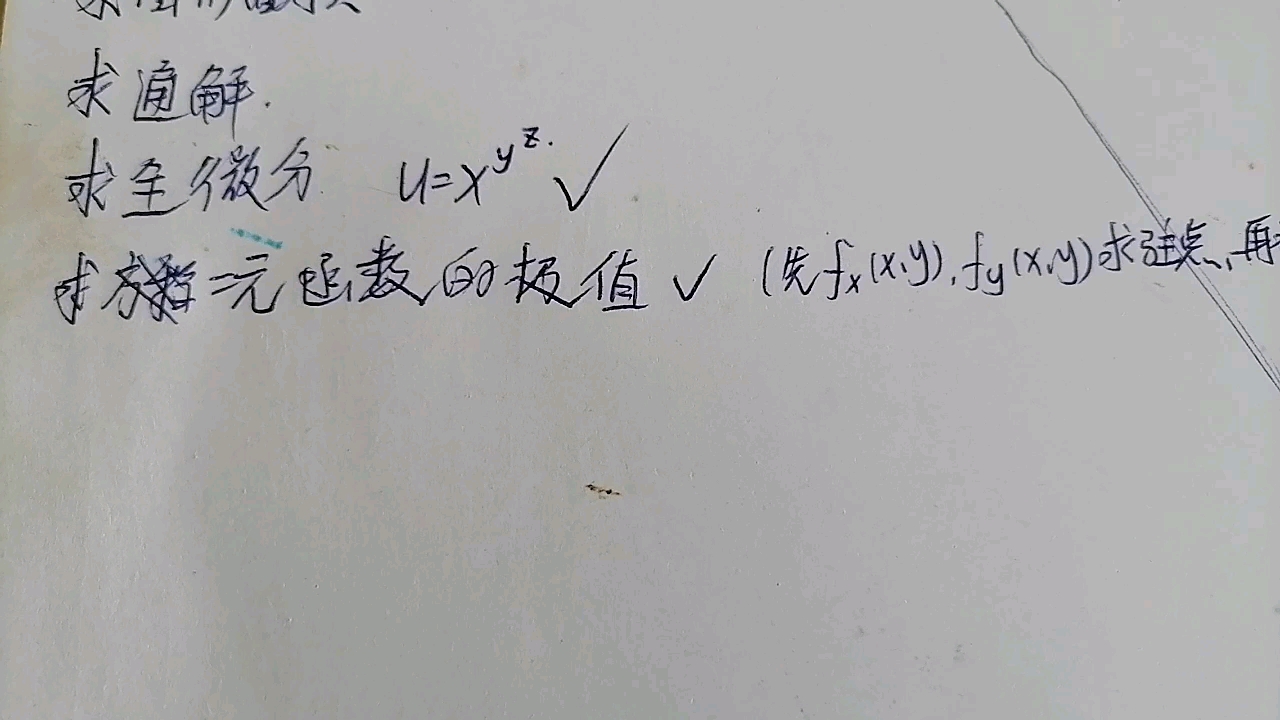 求通解.
求全微分 u=x^{y^z}. ✓
求 二元函数的极值 ✓ (先f_x(x,y),f_y(x,y)求驻点,再